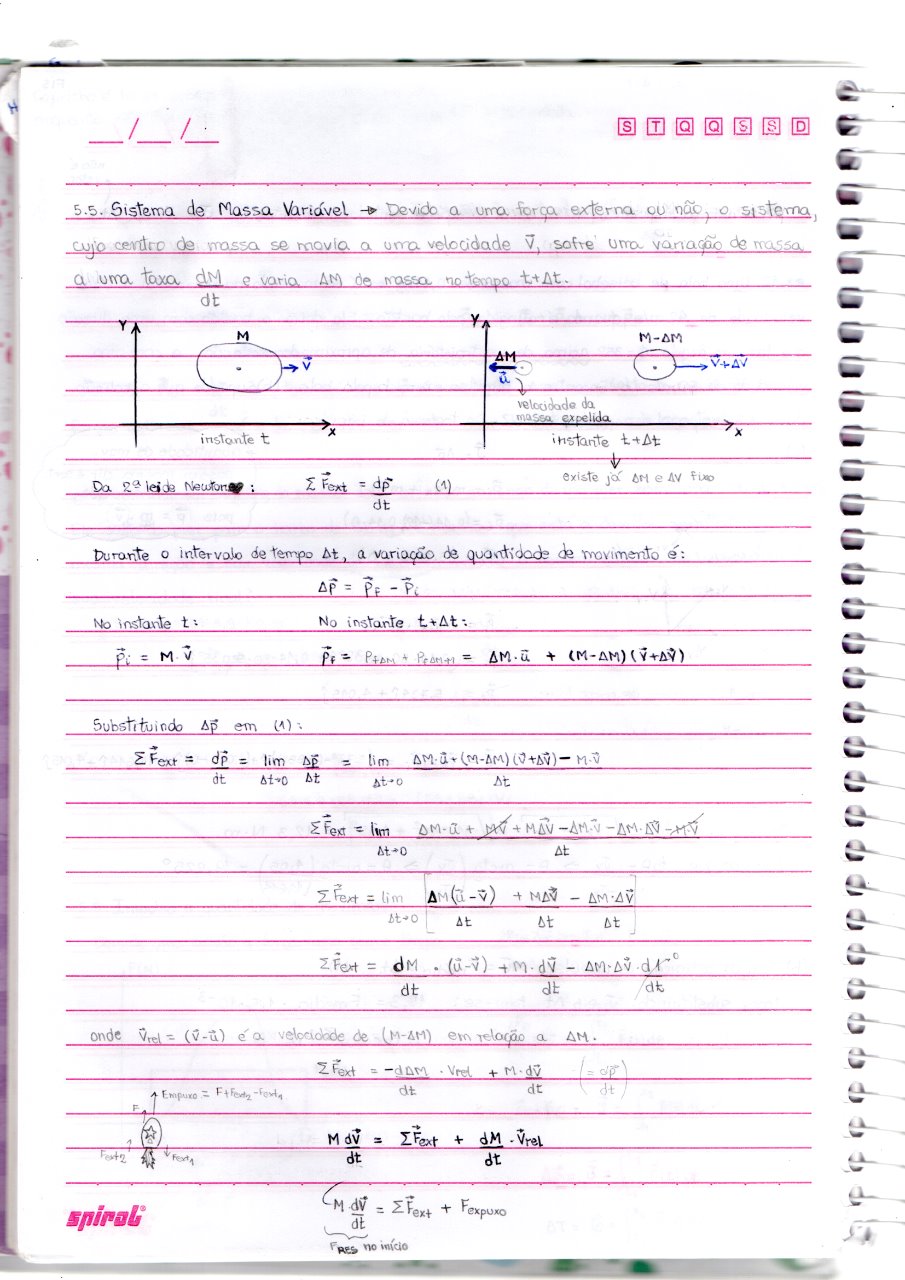 __/__/__
S T Q Q S S D
5.5. Sistema de Massa Variável → Devido a uma força externa ou não, o sistema,
cujo centro de massa se movia a uma velocidade v⃗, sofre uma variação de massa
a uma taxa dM/dt e varia ΔM de massa no tempo t+Δt.
Y M v⃗ x
instante t
Y ΔM u⃗ M-ΔM v⃗+Δv⃗ x
velocidade da
massa expelida
instante t+Δt
existe já ΔM e ΔV fixo
Da 2ª lei de Newton: ΣF⃗ext = dp⃗/dt (1)
Durante o intervalo de tempo Δt, a variação de quantidade de movimento é:
Δp⃗ = p⃗F - p⃗i
No instante t: No instante t+Δt:
p⃗i = M·v⃗ p⃗F = PfΔM + PfΔM+M = ΔM·u⃗ + (M-ΔM)(v⃗+Δv⃗)
Substituindo Δp⃗ em (1):
ΣF⃗ext = dp⃗/dt = lim Δt→0 Δp⃗/Δt = lim Δt→0 ΔM·u⃗+(M-ΔM)(v⃗+Δv⃗)-M·v⃗/Δt
ΣF⃗ext = lim Δt→0 ΔM·u⃗ + Mv⃗ + MΔv⃗ - ΔM·v⃗ - ΔM·Δv⃗ - M·v⃗/Δt
ΣF⃗ext = lim Δt→0 [ΔM(u⃗-v⃗)/Δt + MΔv⃗/Δt - ΔM·Δv⃗/Δt]
ΣF⃗ext = dM/dt · (u⃗-v⃗) + M·dv⃗/dt - ΔM·Δv⃗·d1/dt →0
onde v⃗rel = (v⃗-u⃗) é a velocidade de (M-ΔM) em relação a ΔM.
ΣF⃗ext = -dΔM/dt · Vrel + M·dv⃗/dt (= dp⃗/dt)
Empuxo = F+Fext2-Fext1
F
Fext2 Fext1
M dv⃗/dt = ΣF⃗ext + dM/dt · v⃗rel
M·dv⃗/dt = ΣF⃗ext + Fexpuxo
FRES no início
spiral®